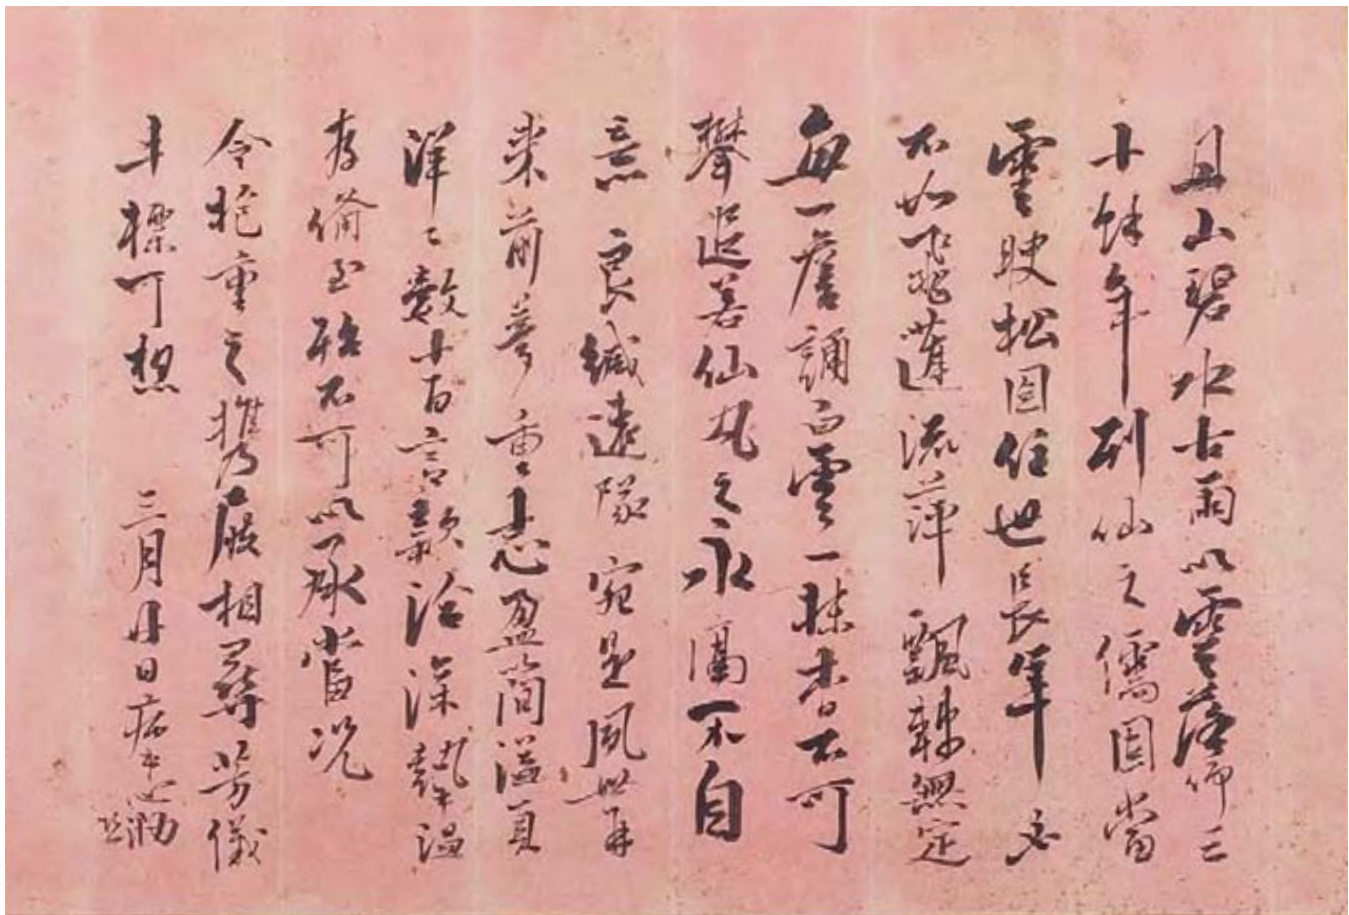 丑山碧水古雨以雲落仰二
十餘年列仙之儒固當
雲臥松固住世長年必
不如飛蓬流萍飄轉無定
每一詹誦白雲一抹杳不可
攀追若仙凡之永隔不自
意良緘遠墜宛是夙世再
來前夢重重志盈簡溢頁
洋洋數十百言款洽深熱溫
存備至殆不可以承當況
令抱重之攜屐相尋芳儀
斗標可想 三月廿日病